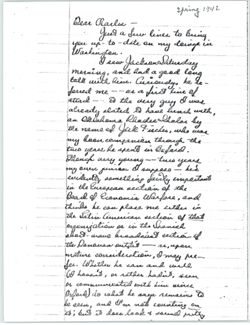 Spring 1942
Dear Charlie —
Just a few lines to bring
you up-to-date on my doings in
Washington.
I saw Jackson Saturday
morning, and had a good long
talk with him. Curiously, he re-
ferred me — as a first line of
attack — to the very guy I was
already slated to have lunch with,
an Oklahoma Rhodes Scholar by
the name of Jack Fischer, who was
my boon companion through the
two years he spent in Oxford.
Though very young — two years
my own junior I suppose — he's
evidently something fairly important
in the European section of the
Board of Economic Warfare, and
thinks he can place me either in
the Latin American section of that
organization or in the Spanish
short-wave broadcast section of
the Donovan outfit — as, upon
mature consideration, I may pre-
fer. Whether he can and will
(I haven't, or rather hadn't, seen
or communicated with him since
Oxford) do what he says remains to
be seen, and I'm not counting on
it; but it does look a sound pretty